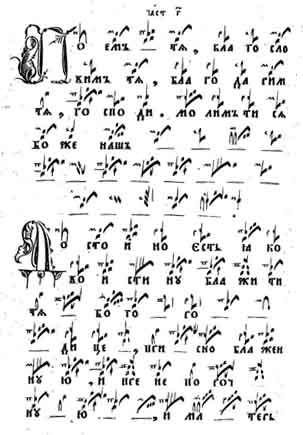 част г҃
П О ЕМЪ ТѦ, БЛА ГО СЛО
ВИМЪ ТѦ, БЛА ГО ДА РИМ
ТѦ, ГО СПО ДИ. МО ЛИМЪ ТИ СѦ
БО ЖЕ НАШЪ
Д О СТО И НО ЄСТЬ ꙖКО
ВО И СТИ НУ БЛА ЖИ ТИ
ТѦ БО ГО РО
ДИ ЦЕ, ПРИ СНО БЛА ЖЕН
НУ Ю, И ПРЕ НЕ ПО РОЧ
НУ Ю, И МА ТЕРЬ